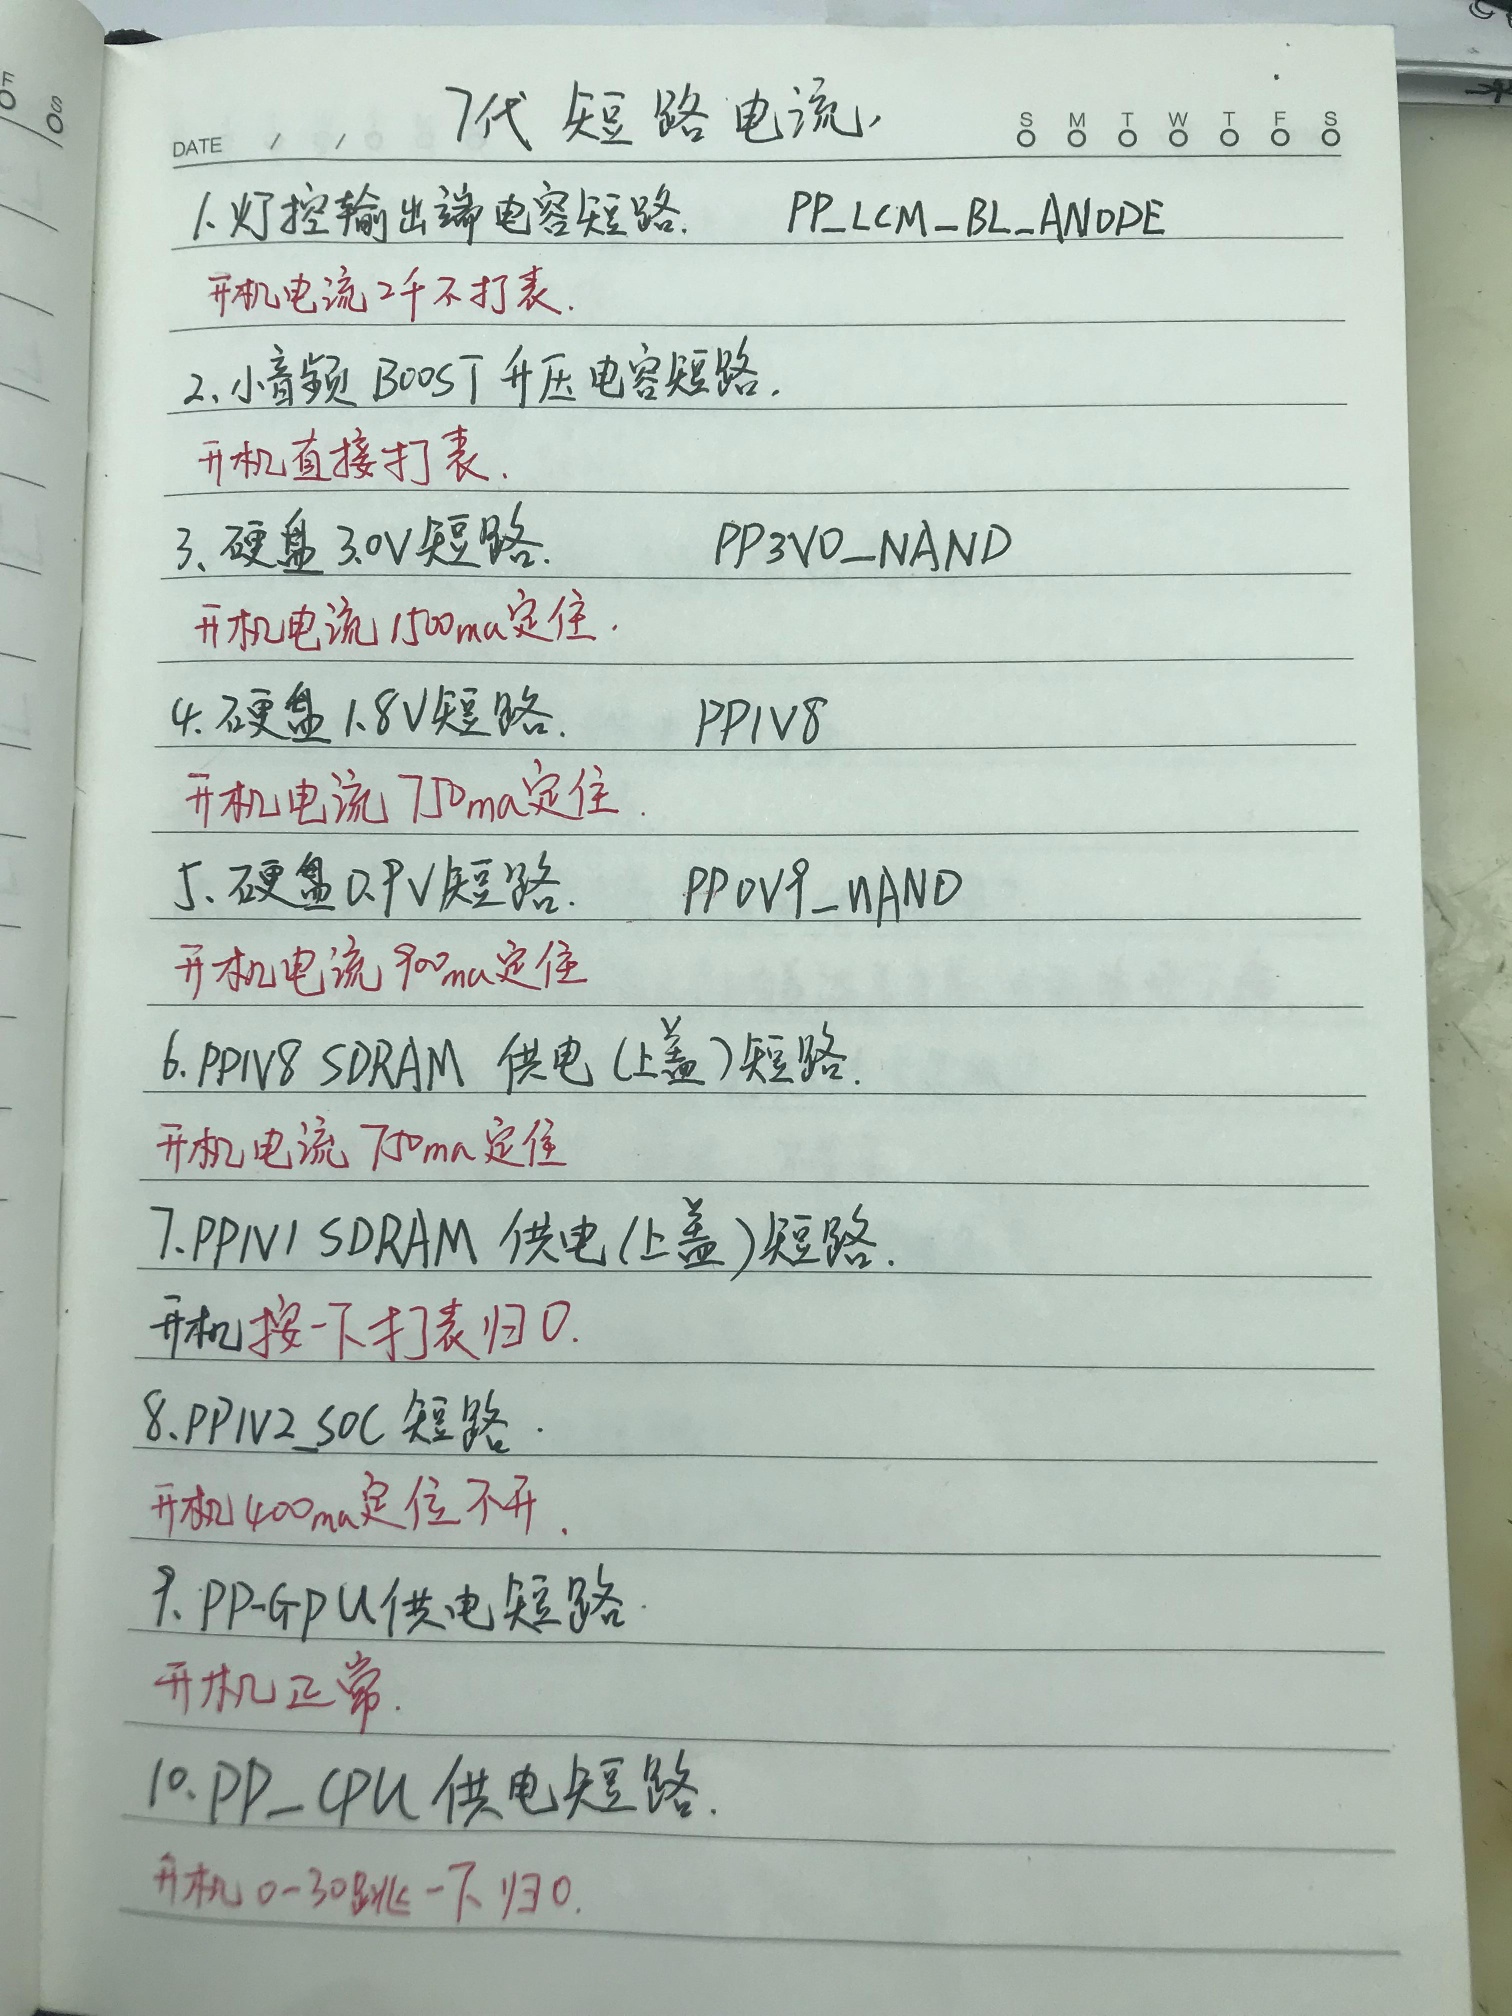 7代短路电流.
DATE / / S M T W T F S
1.灯控输出端电容短路. PP_LCM_BL_ANODE
开机电流2千不打表.
2.小音频BOOST升压电容短路.
开机直接打表.
3.硬盘3.0V短路. PP3V0_NAND
开机电流1500ma定住.
4.硬盘1.8V短路. PP1V8
开机电流750ma定住.
5.硬盘0.9V短路. PP0V9_NAND
开机电流900ma定住
6.PP1V8 SDRAM 供电(上盖)短路.
开机电流750ma定住
7.PP1V1 SDRAM 供电(上盖)短路.
开机按一下打表归0.
8.PP1V2_SOC短路.
开机400ma定位不开.
9.PP-GPU供电短路.
开机正常.
10.PP_CPU供电短路.
开机0-30跳一下归0.